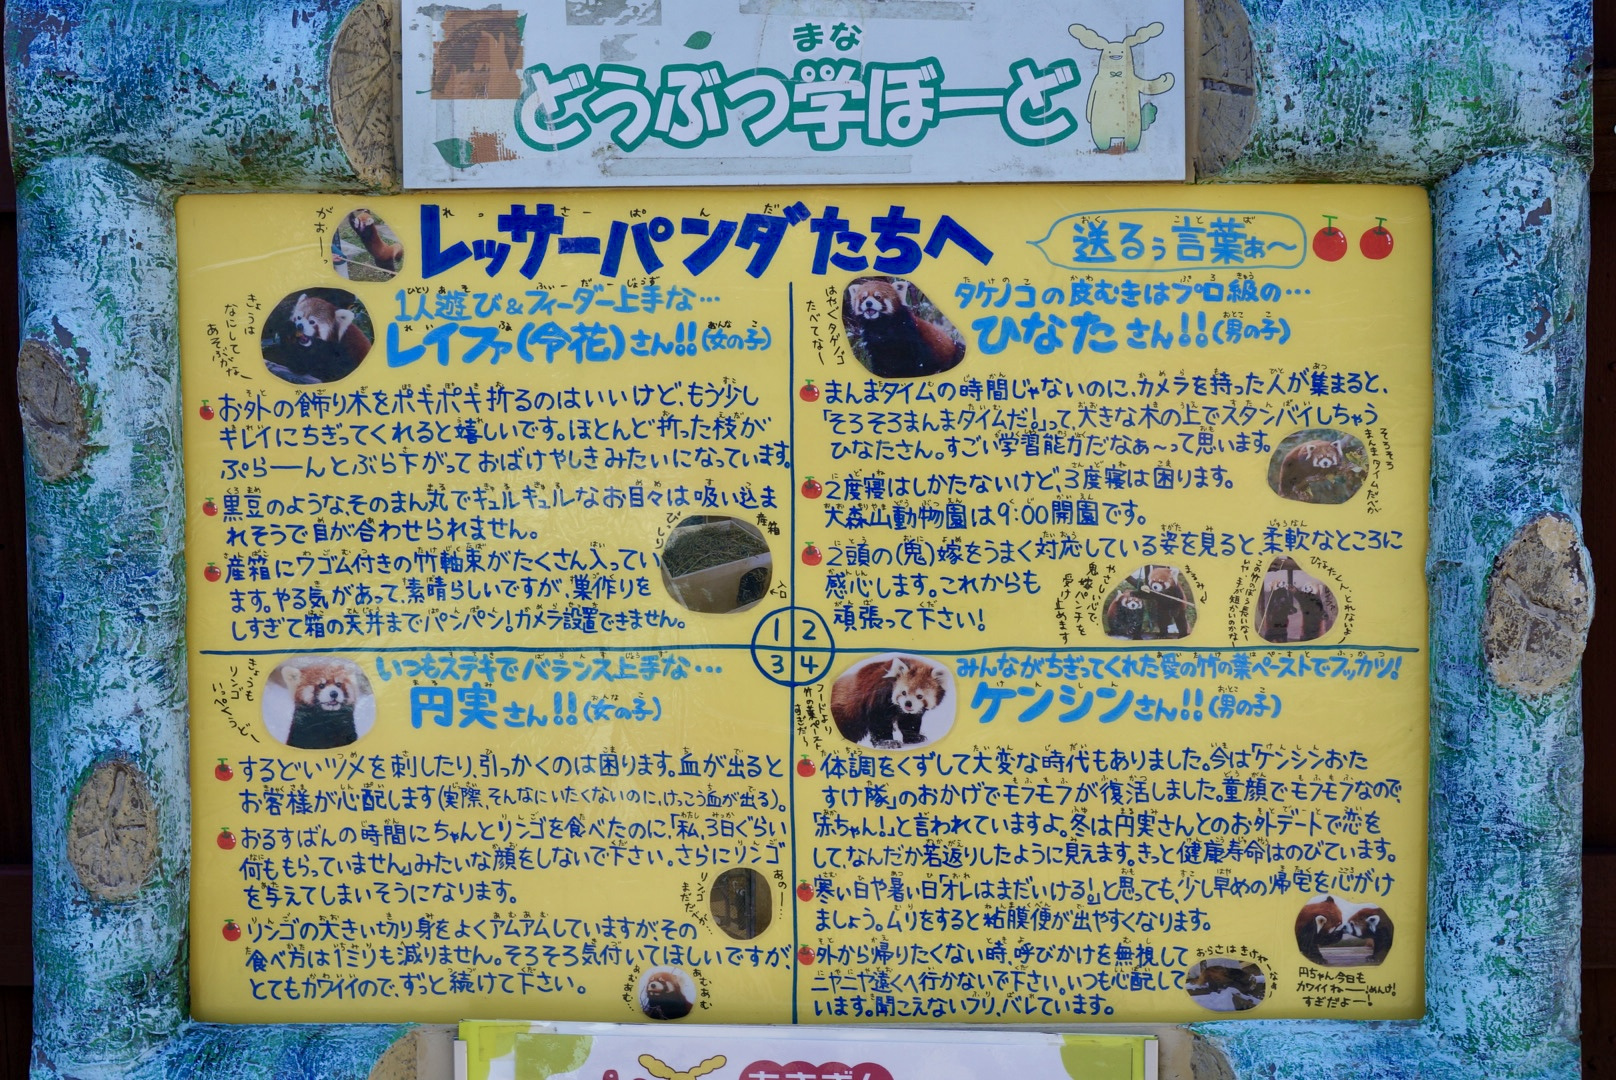 まな
どうぶつ学ぼーど
がおーっ
レッサーパンダたちへ
送るぅ言葉ぁ〜
1人遊び&フィーダー上手な…
レイファ(令花)さん!!(女の子)
きょうは
なにして
あそぶかな
お外の飾り木をポキポキ折るのはいいけど、もう少し
キレイにちぎってくれると嬉しいです。ほとんど折った枝が
ぷらーーんとぶら下がっておばけやしきみたいになっています。
黒豆のような、そのまん丸でキュルキュルなお目々は吸い込ま
れそうで目が合わせられません。
産箱にワゴム付きの竹軸束がたくさん入ってい
ます。やる気があって、素晴らしいですが、巣作りを
しすぎて箱の天井までパンパン!カメラ設置できません。
びっしり
産箱
入口
タケノコの皮むきはプロ級の…
ひなたさん!!(男の子)
はやくタケノコ
たべてなー
まんまタイムの時間じゃないのに、カメラを持った人が集まると、
「そろそろまんまタイムだ!」って大きな木の上でスタンバイしちゃう
ひなたさん。すごい学習能力だなぁ〜って思います。
そろそろ
まんまタイムだべか
2度寝はしかたないけど、3度寝は困ります。
大森山動物園は9:00開園です。
2頭の(鬼)嫁をうまく対応している姿を見ると、柔軟なところに
感心します。これからも
頑張って下さい!
やさしい心で、
鬼嫁パンチを
受け止めます
まるみ
ひなたくん、とれないよ!
1
2
3
4
いつもステキでバランス上手な…
円実さん!!(女の子)
きょうも
リンゴ
いっぺくうどー
するどいツメを刺したり、引っかくのは困ります。血が出ると
お客様が心配します(実際、そんなにいたくないのに、けっこう血が出る)。
おるすばんの時間にちゃんとリンゴを食べたのに、「私、3日ぐらい
何ももらっていません」みたいな顔をしないで下さい。さらにリンゴ
を与えてしまいそうになります。
あのー…
リンゴ
まだだんが…
リンゴの大きい切り身をよくアムアムしていますが、その
食べ方は1ミリも減りません。そろそろ気付いてほしいですが、
とてもカワイイので、ずっと続けて下さい。
あむあむ
あむあむ
みんながちぎってくれた愛の竹の葉ペーストでフッカツ!
ケンシンさん!!(男の子)
フードより
竹の葉ペースト
すぎだ〜
体調をくずして大変な時代もありました。今は「ケンシンおた
すけ隊」のおかげでモフモフが復活しました。童顔でモフモフなので、
「赤ちゃん!」と言われていますよ。冬は円実さんとのお外デートで恋を
して、なんだか若返りしたように見えます。きっと健康寿命はのびています。
寒い日や暑い日「オレはまだいける!」と思っても、少し早めの帰宅を心がけ
ましょう。ムリをすると粘膜便が出やすくなります。
外から帰りたくない時、呼びかけを無視して
ニヤニヤ遠くへ行かないで下さい。いつも心配して
います。聞こえないフリ、バレています。
おらさはきけやーなぁ
円ちゃん今日も
カワイイねー
めんけ!
すぎだよー!